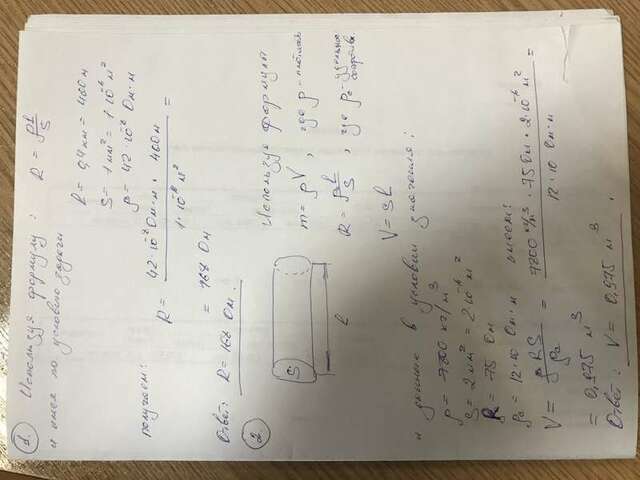 1. Используя формулу: R = ρl/S
и имея по условию задачи
l = 0,4 км = 400 м
S = 1 мм² = 1·10⁻⁶ м²
ρ = 42·10⁻⁸ Ом·м
получаем:
R = 42·10⁻⁸ Ом·м · 400м / 1·10⁻⁶ м² =
= 168 Ом
Ответ: R = 168 Ом.
2. Используя формулы
S
m = ρV, где ρ - плотность
l
R = ρ l/S, где ρc - удельное сопротивл.
V = Sl
и данные в условии значения:
ρ = 7800 кг/м³
S = 2 мм² = 2·10⁻⁶ м²
R = 75 Ом
ρc = 12·10 Ом·м имеем:
V = ρRS/ρc = 7800 кг/м³ · 75 Ом · 2·10⁻⁶ м² / 12·10 Ом·м =
= 0,975 м³
Ответ: V = 0,975 м³.